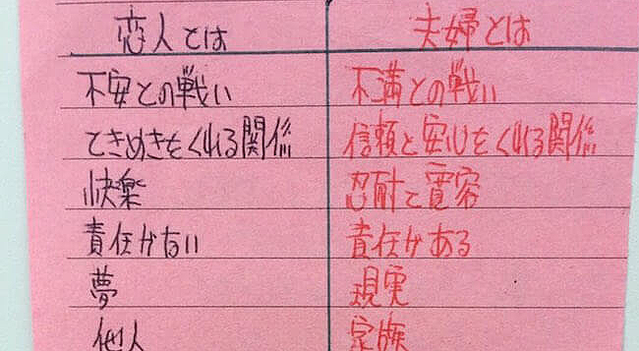 恋人とは 夫婦とは
不安との戦い 不満との戦い
ときめきをくれる関係 信頼と安心をくれる関係
快楽 忍耐と寛容
責任がない 責任がある
夢 現実
他人 家族